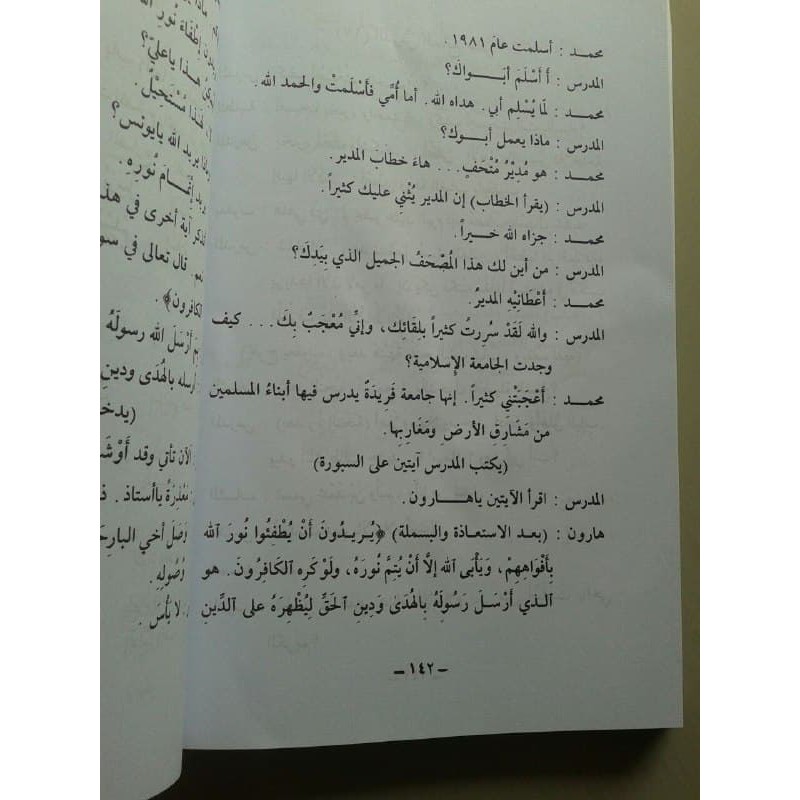 محمد : أسلمت عامَ ١٩٨١ .
المدرس : أَ أَسْلَمَ أبَـــواكَ؟
محمد : لَمَّا يُسْلِم أبي. هداه الله. أما أُمِّي فَأَسْلَمتْ والحمد الله.
المدرس : ماذا يعمل أبــوك؟
محمد : هو مُدِيْرُ مُتْحَفٍ... هاءَ خطابَ المدير.
المدرس : (يقرأ الخطاب) إن المدير يُثْنِي عليك كثيراً.
محمد : جزاه الله خـــيراً.
المدرس : من أين لك هذا المُصْحَفُ الجميل الذي بِيَدِكَ؟
محمد : أَعْطَانِيْهِ المديرُ.
المدرس : والله لَقَدْ سُرِرتُ كثيراً بِلِقَائِك، وإنِّي مُعْجَبٌ بِكَ... كيف
وجدت الجامعة الإسلامية؟
محمد : أَعْجَبَتْنِي كثيراً. إنها جامعة فَرِيدَةٌ يدرس فيها أبناءُ المسلمين
من مَشَارِقِ الأرضِ ومَغَارِبِها.
(يكتب المدرس آيتين على السبورة)
المدرس : اقرأ الآيتين ياهـــارون.
هارون : (بعد الاستعاذة والبسملة) ﴿يُـرِيـدُونَ أَنْ يُطْفِئُوا نُورَ الله
بِأَفْوَاهِهِمْ، وَيَأْبَى الله إلَّا أَنْ يُتِمَّ نُورَهُ، وَلَوْ كَرِهَ الكَافِرُونَ. هو
الـذي أَرْسَلَ رَسُولَهُ بِالهُدَىٰ وَدِينِ الحَقِّ لِيُظْهِرَهُ على الدِّينِ
– ١٤٢ –
هذا ياعليّ؟
هذا مُسْتَحِيْلٌ.
يريد الله يايونس؟
إِتْمَامَ نُورِهِ.
آية أخرى في هذ
قال تعالى في سو
الكافرون﴾.
أَرْسَلَ الله رسولَهُ
أرسله بالهُدَى ودين
(يدخـ
الآن تأتي وقد أَوْشَـ
مَعْذِرَةً ياأستاذ .
وَصَلَ أخي البارِحَـ
وُصُولِهِ.
لا بَأْسَ .